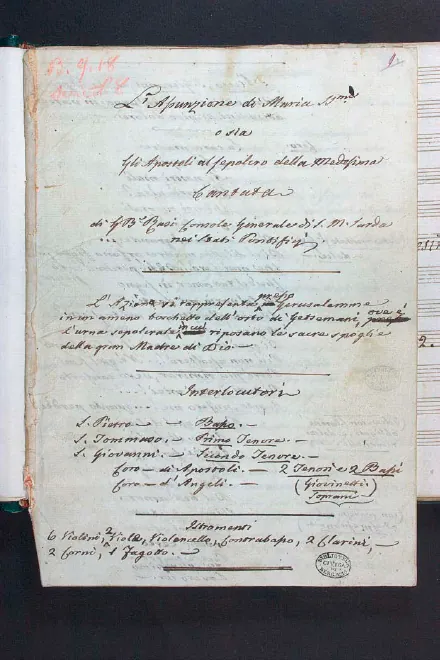 1.
L'Assunzione di Maria SS.ma
o sia
Gli Apostoli al sepolcro della Medesima
Cantata
di G. B. Console Generale di S. M. Sarda
nei Stati Pontifici
L'Azione si rappresenta presso Gerusalemme
in un ameno boschetto dell'orto di Getsemani, ove è
l'urna sepolcrale in cui riposano le sacre spoglie
della gran Madre di Dio.
Interlocutori
S. Pietro — Basso. —
S. Tommaso. — Primo Tenore. —
S. Giovanni. — Secondo Tenore. —
Coro — di Apostoli. — 2 Tenori e 2 Bassi
Coro — d'Angeli. — (Giovinetti
Soprani)
Istromenti
6 Violini, 2 Viole, Violoncello, Contrabasso, 2 Clarini, —
2 Corni, 1 Fagotto. —
BIBLIOTECA
CIVICA
BERGAMO
2.